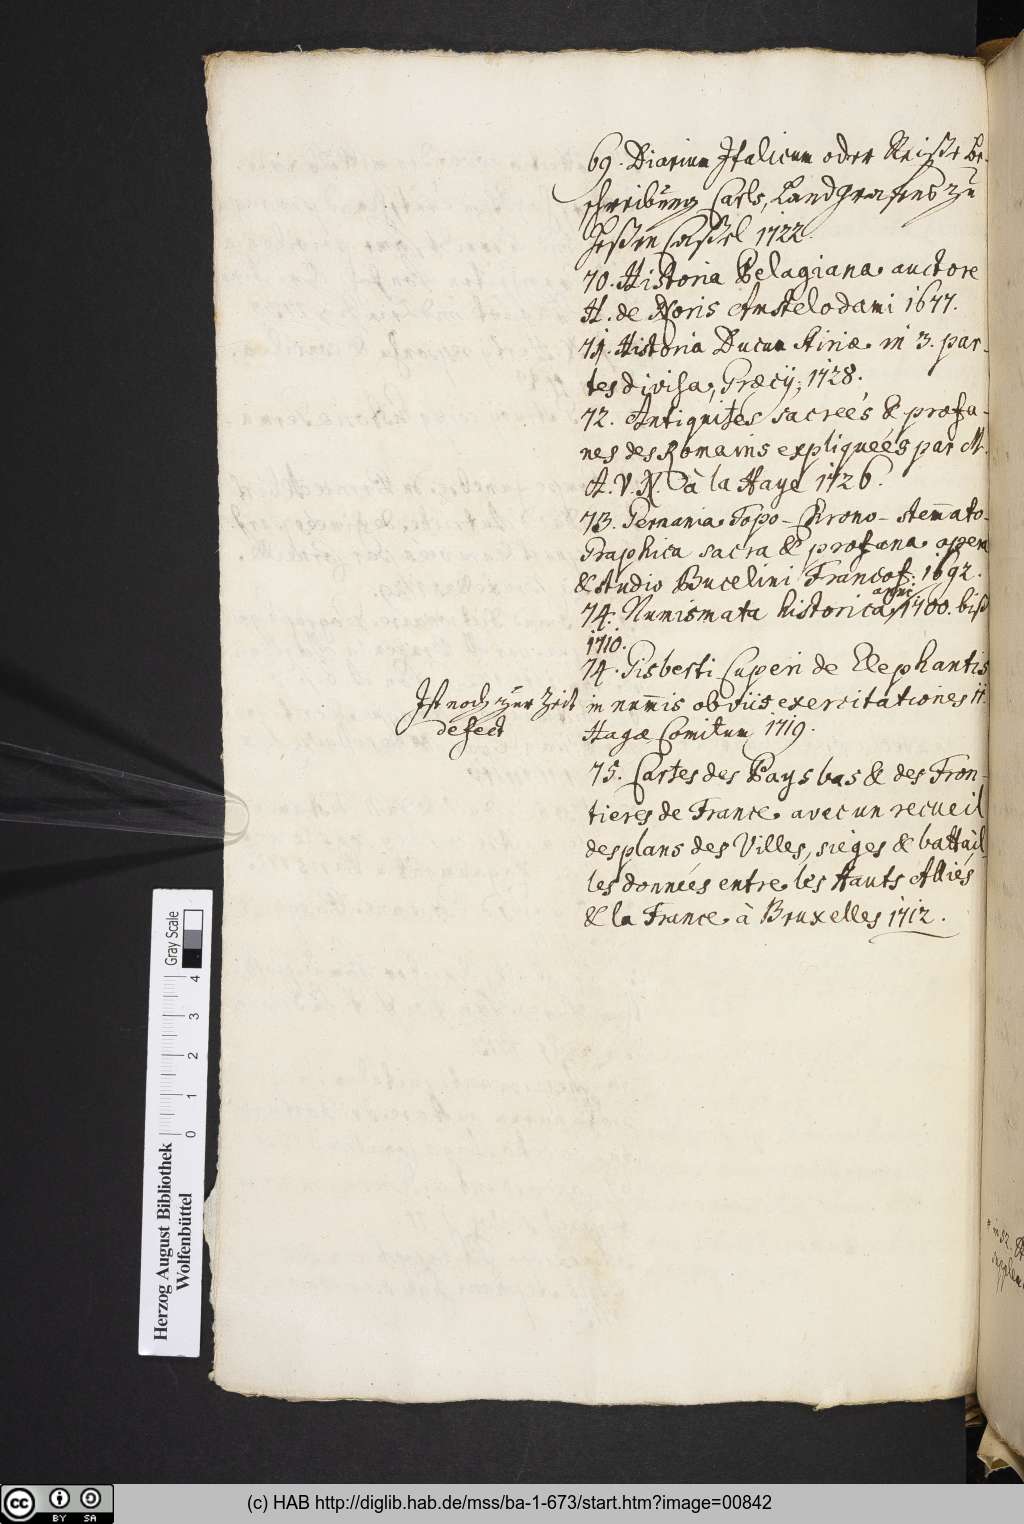 69. Diarium Italicum oder Reiße be-
schreibung Carls, Landgrafens zu
Heßen Caßel 1722.
70. Historia Pelagiana auctore
H. de Noris Amstelodami 1677.
71. Historia Ducum Stiriæ in 3. par-
tes divisa, Græcij, 1728.
72. Antiquites sacreés & profa-
nes des Romains expliqueés par M.
A. V. N. à la Haye 1726.
73. Germania Topo-Chrono-stem̄ato-
Graphica sacra & profana opera
& studio Bucelini Francof: 1692.
anno
74. Numismata historica 1700. biß
1710.
74. Gisberti Cuperi de Elephantis
Ist noch zur Zeit
defect
in num̄is obviis exercitationes ii.
Hagæ Comitum 1719.
75. Cartes des Pays bas & des Fron-
tieres de France avec un recueil
des plans des Villes, sieges & battail-
les donnees entre les Hauts Alliés
& la France à Bruxelles 1712.
Gray Scale
4
3
2
1
0
Herzog August Bibliothek
Wolfenbüttel
cc BY SA
(c) HAB http://diglib.hab.de/mss/ba-1-673/start.htm?image=00842